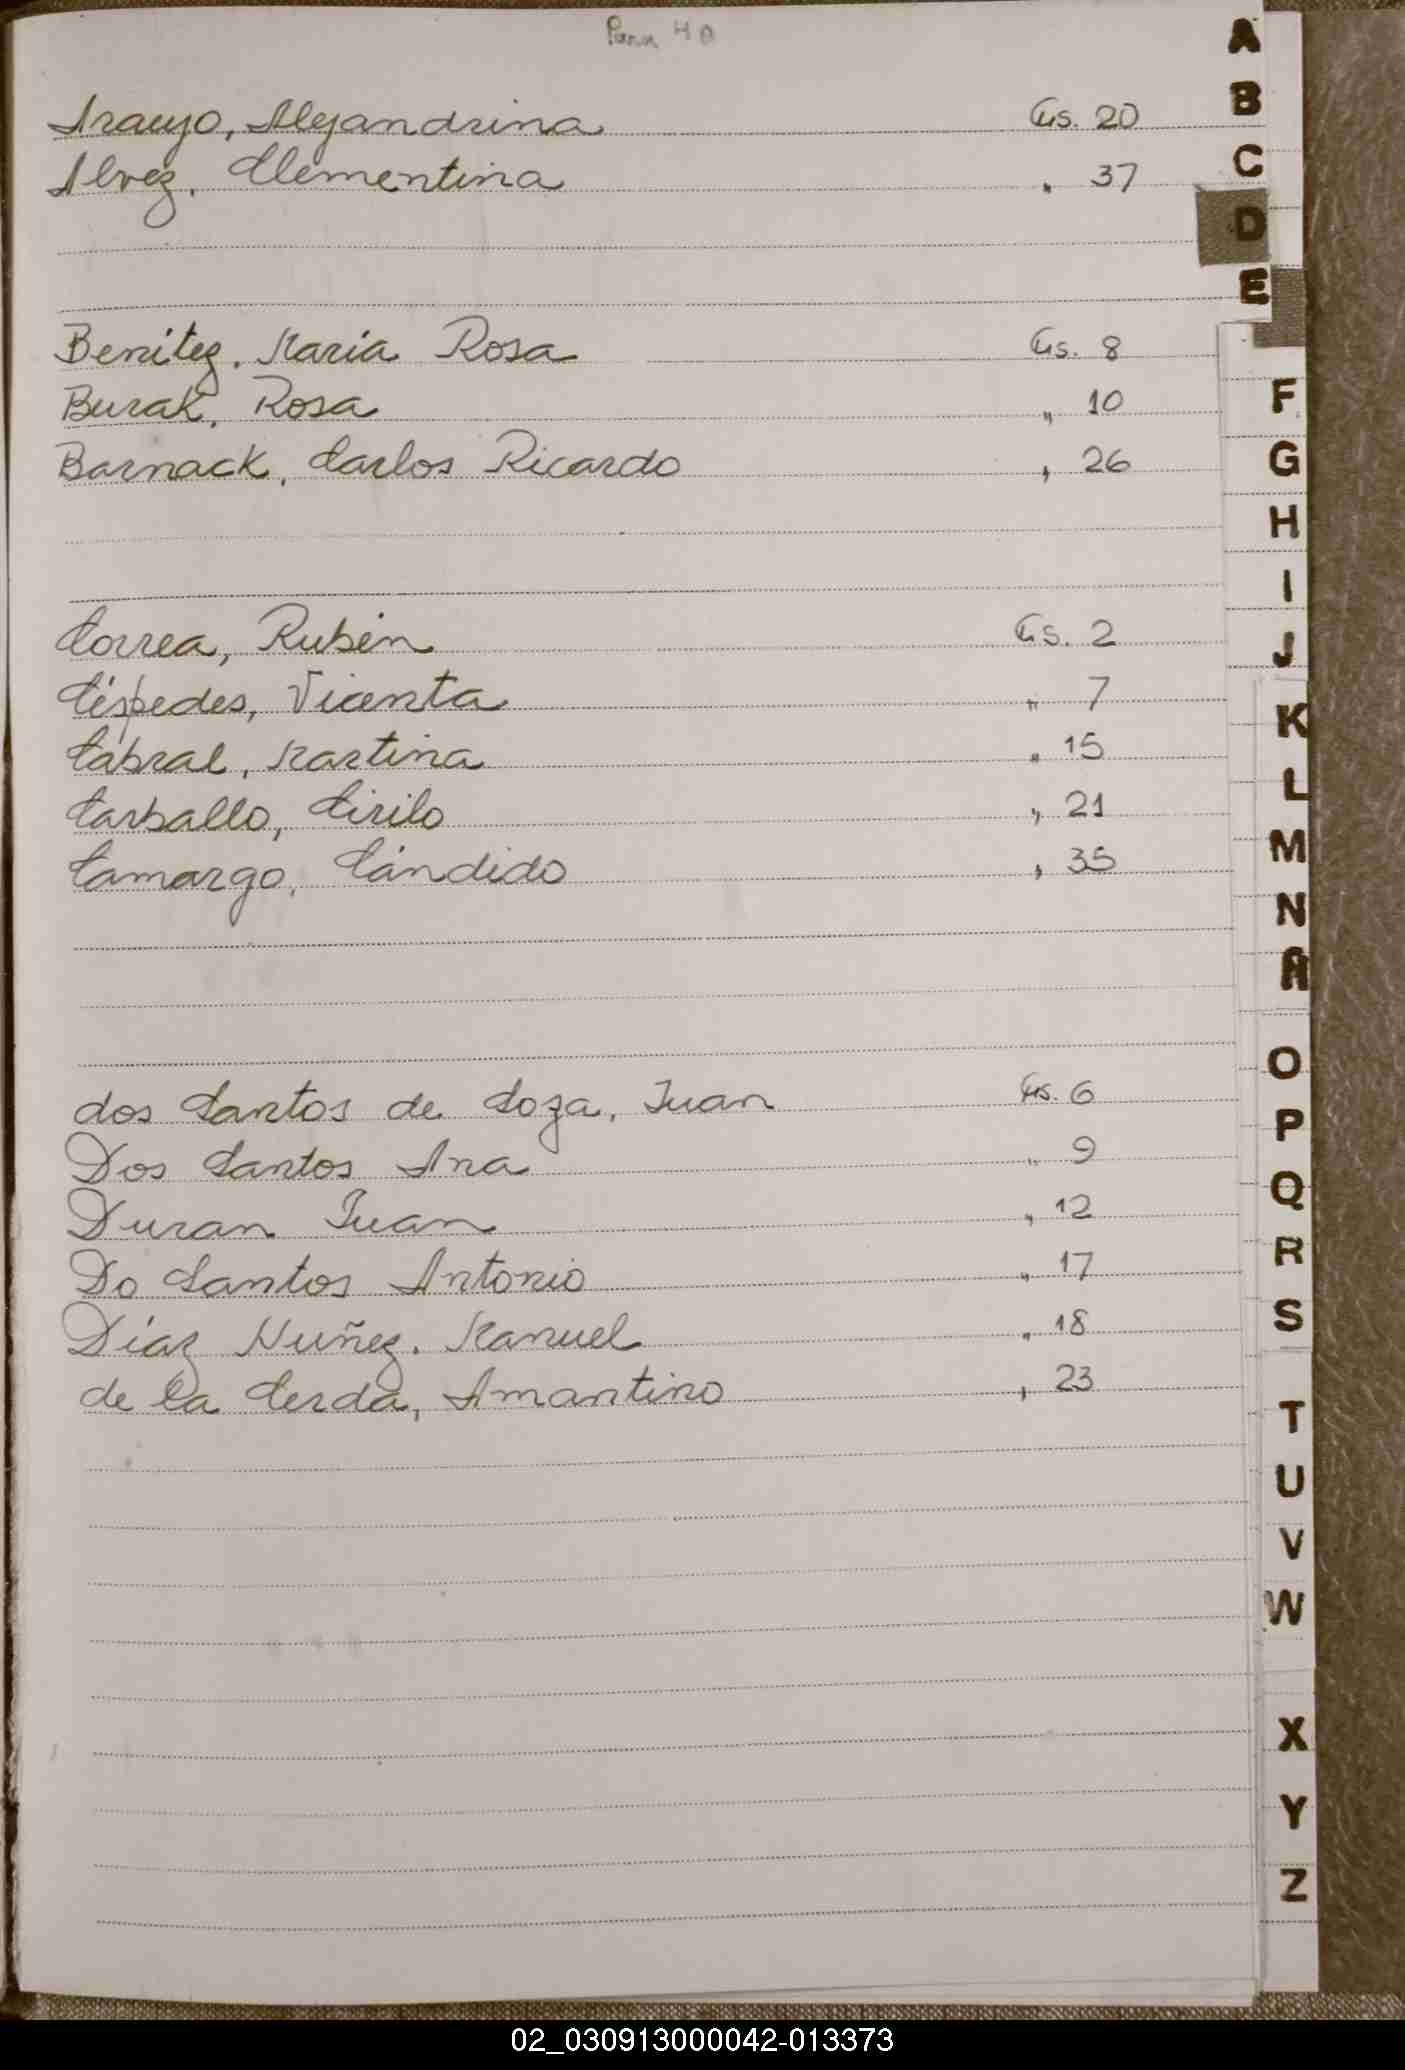 Araujo, Alejandrina 20
Alvez, Clementina " 37
Benitez, Maria Rosa 8
Burak, Rosa " 10
Barnack, Carlos Ricardo " 26
Correa, Rubén 2
Céspedes, Vicenta " 7
Cabral, Martina " 15
Carballo, Cirilo " 21
Camargo, Cándido " 35
dos Santos de Soza, Juan 6
Dos Santos Ana " 9
Duran Juan " 12
Do Santos Antonio " 17
Díaz Nuñez, Manuel " 18
de la Cerda, Amantino " 23
A
B
C
D
E
F
G
H
I
J
K
L
M
N
Ñ
O
P
Q
R
S
T
U
V
W
X
Y
Z
02_030913000042-013373